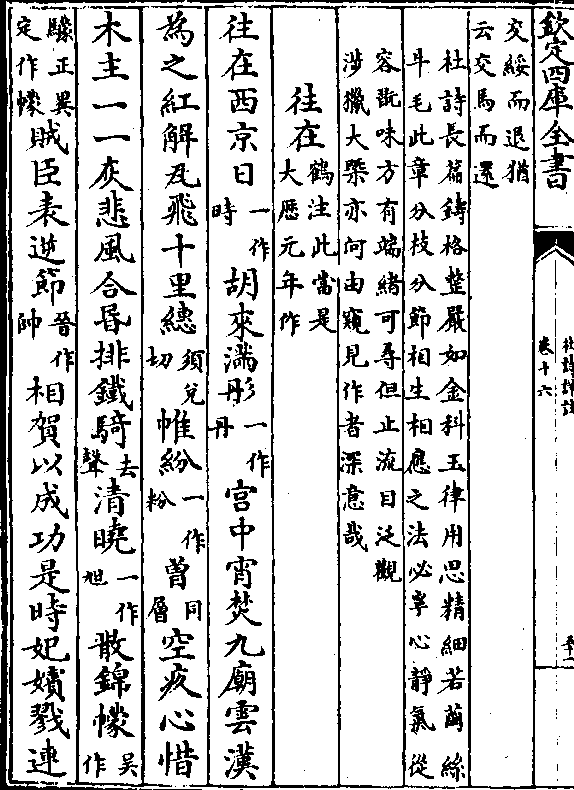 欽定四庫全書
杜詩詳註
卷十六
交綏而退猶
云交馬而還
杜詩長篇鑄格整嚴如金科玉律用思精細若繭絲
牛毛此章分枝分節相生相應之法必掔心靜氣從
容翫味方有端緒可尋但止流目泛觀
涉獵大槩亦何由窺見作者深意哉
往在鶴注此當是大厯元年作
往在西京日一作時胡來滿彤一作丹宫中宵焚九廟雲漢
為之紅解瓦飛十里繐須兑切帷紛一作粉曾同層空疚心惜
木主一一灰悲風合昬排鐵騎去聲清曉一作旭散錦幪吳作
驥正異定作幪賊臣表逆節晉作帥相賀以成功是時妃嬪戮連